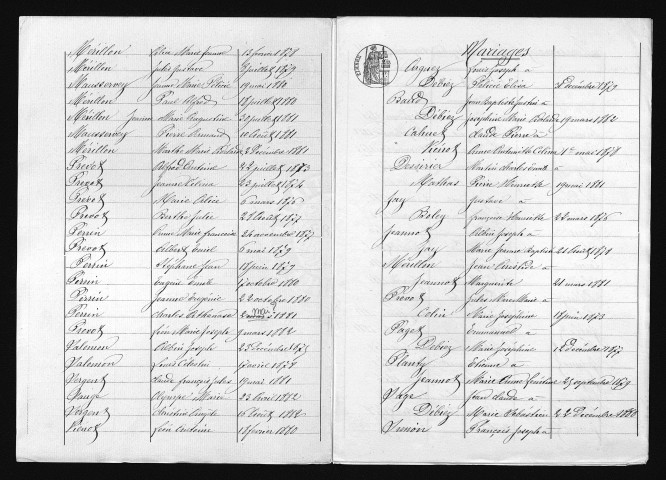 Mérillon Célina Marie Jeanne 13 février 1878
Mérillon Jules Gustave 9 juillet 1879
Mausservey Jeanne Marie Félicie 19 mai 1880
Mérillon Paul Alfred 18 juillet 1880
Mérillon Jeanne Marie Augustine 30 juillet 1881
Mausservey Pierre Armand 10 août 1881
Mérillon Marthe Marie 2 Décembre 1881
Prevot Alfred Antoine 22 juillet 1873
Prevot Jeanne Célina 23 juillet 1874
Prevot Marie Alice 6 mars 1876
Prevot Berthe Julie 28 Août 1877
Perrin Anne Marie francoise 24 novembre 1877
Prevot Albert Emile 6 mai 1879
Perrin Stéphane Jean 18 juin 1879
Perrin Eugène Emile 17 octobre 1880
Perrin Jeanne Eugénie 22 octobre 1880
Perrin Charles Athanase 2 mai 1881
Prevot Félix Marie Joseph 9 mars 1882
Valemon Albin Joseph 25 Décembre 1875
Valemon Louis Célestin 7 avril 1878
Vergent Claude françois Jules 19 mai 1881
Vauge Olympe Marie 23 Avril 1882
Vergent Christin Emile 6 Août 1882
Vienet Félix Antoine 18 février 1880
Mariages
Arquez Louis Joseph à
Débiez Félicie Eliva 3 Décembre 1879
Baud Jean Baptiste Justin à
Débiez Joséphine Marie 19 mars 1882
Cattenet Claude Pierre à
Vienot Anne Antoinette Célima 1er mai 1878
Desvirier Martin Charles à
Mathas Reine Henriette 19 mai 1881
Jay Gustave à
Boley françoise Henriette 22 mars 1876
Jeannot Albin Joseph à
Jay Marie Jeanne Baptiste 21 Août 1878
Mérillon Jean Aristide à
Jeannot Marguerite 21 mars 1881
Prevot Jules à
Colin Marie Joséphine 18 juin 1873
Paget Emmanuel à
Débiez Marie Joséphine 12 Décembre 1877
Plantz Etienne à
Jeannot Marie Anne 25 septembre 1879
Vage Jean Claude à
Débiez Marie Sébastien 22 Décembre 1880
Simon François Joseph à